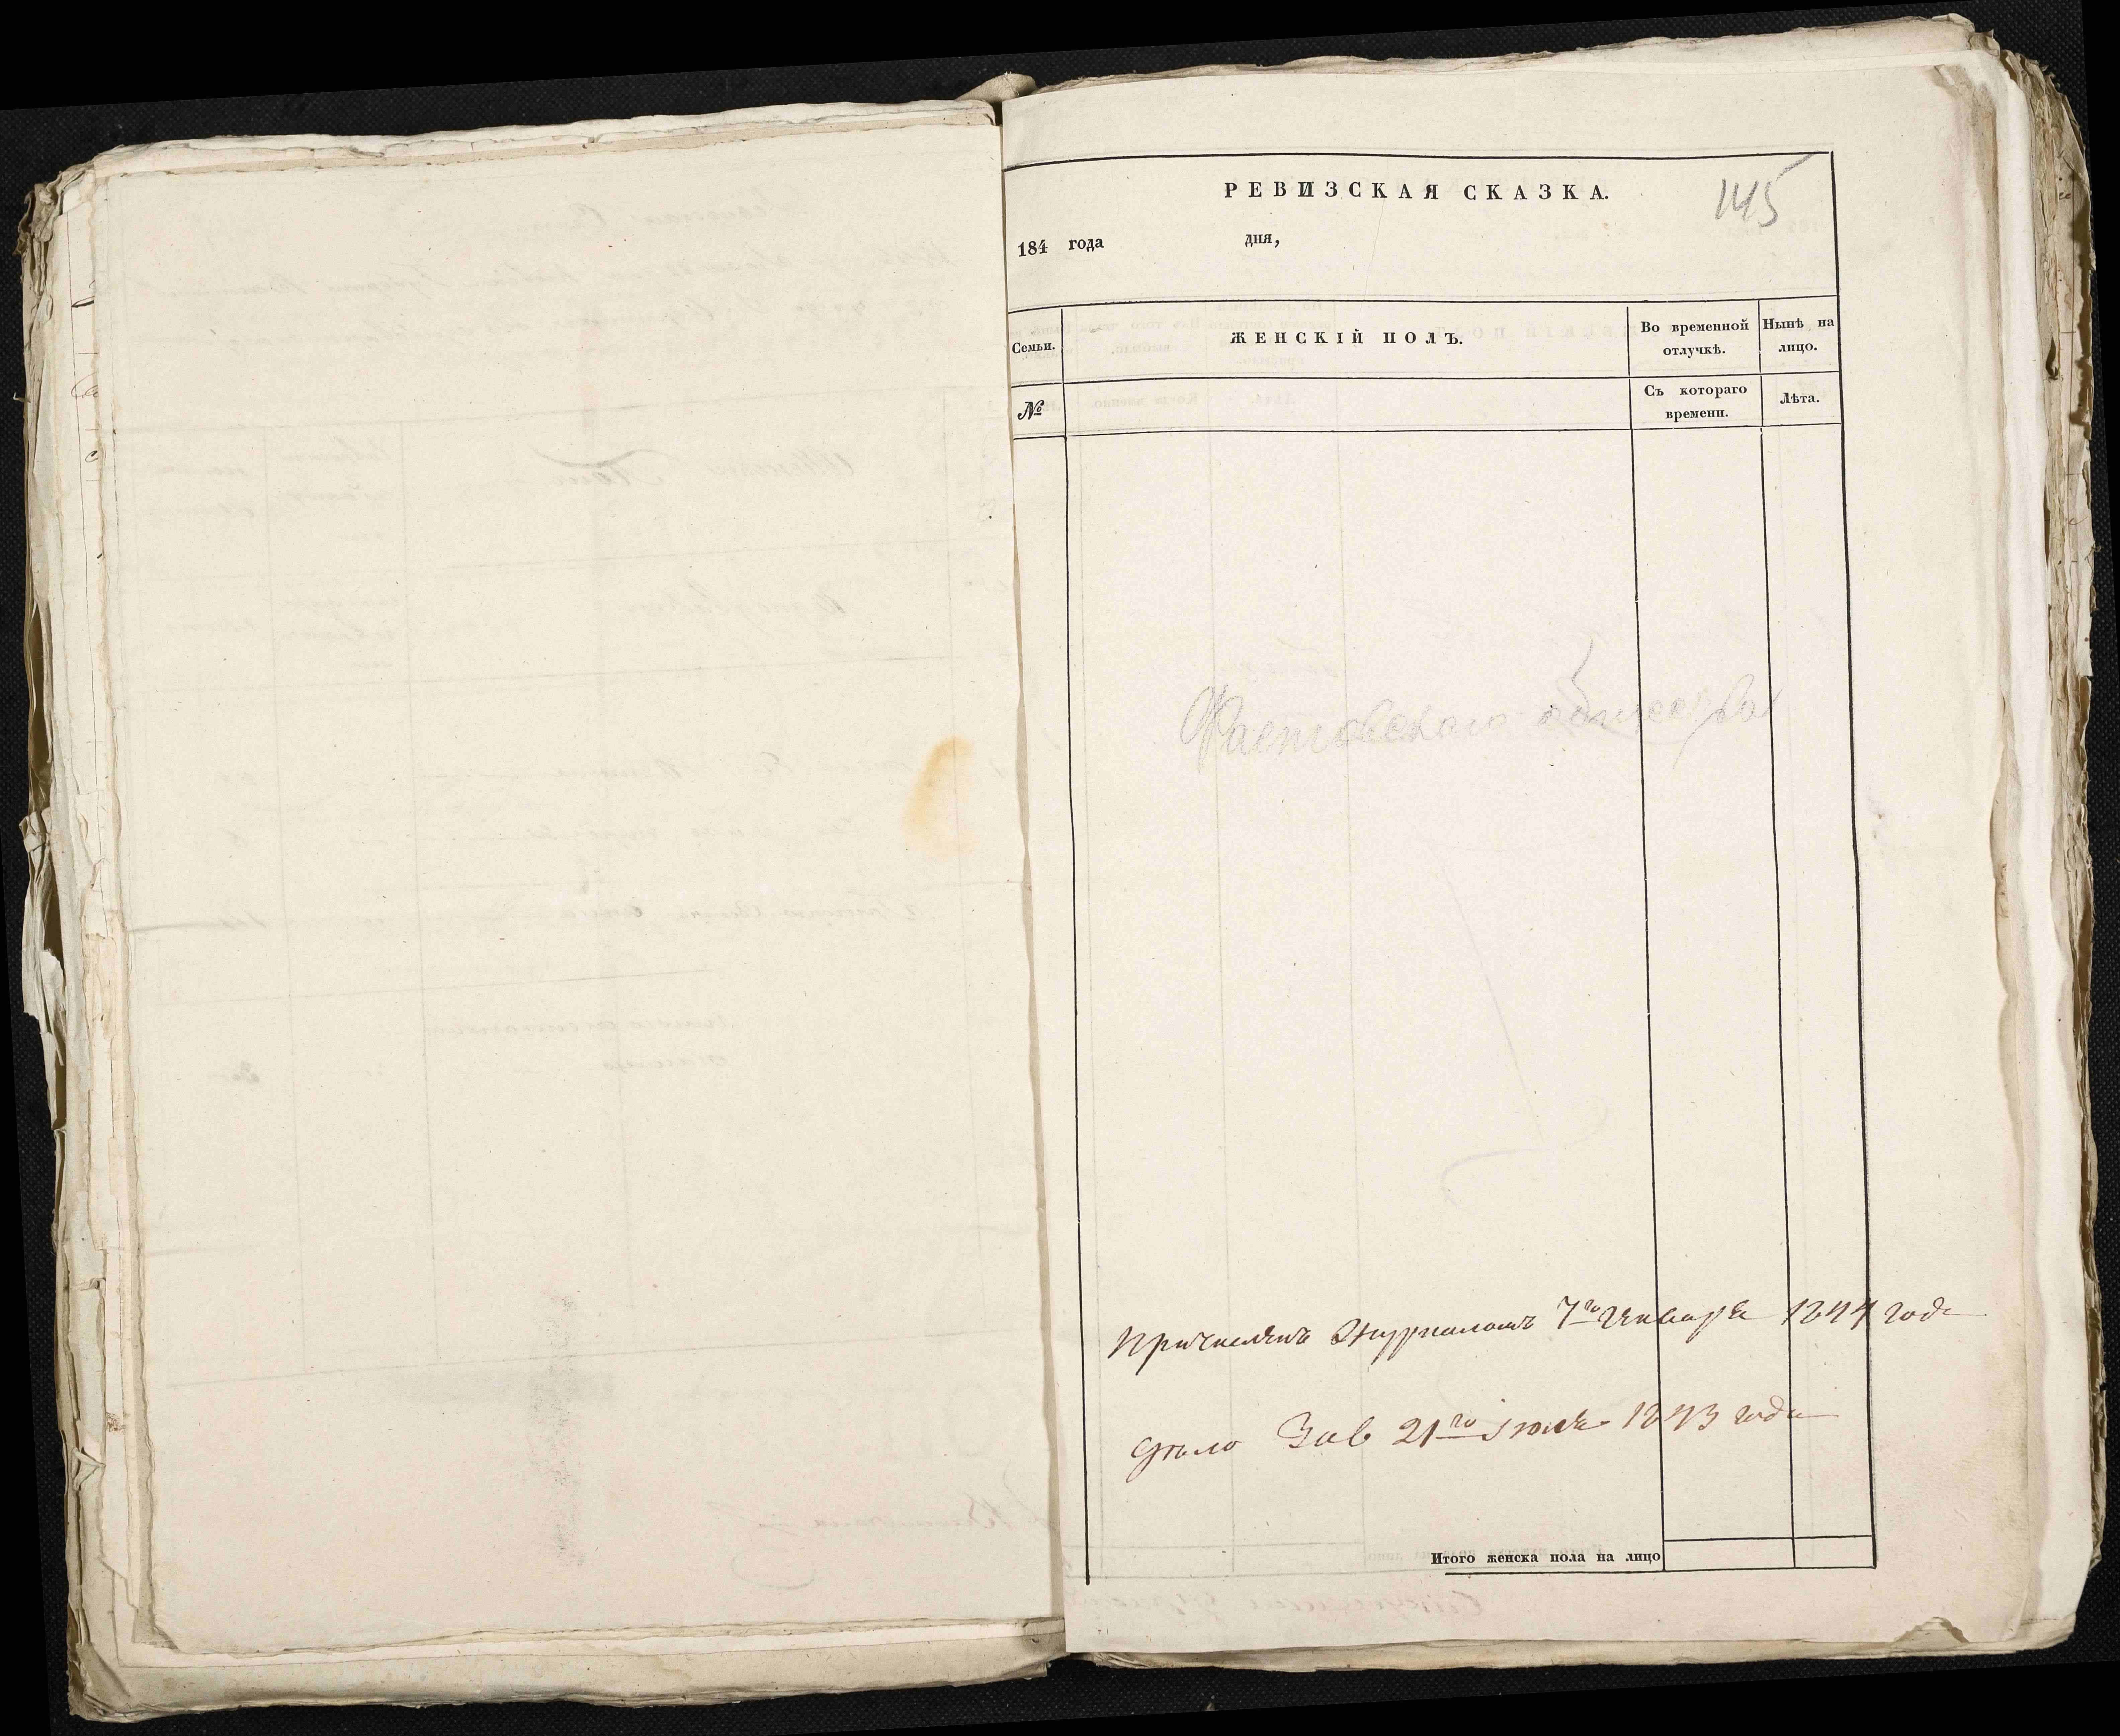 РЕВИЗСКАЯ СКАЗКА.
145
184 года дня,
Семьи.
ЖЕНСКІЙ ПОЛЪ.
Во временной отлучкѣ.
Нынѣ на лицо.
№
Съ котораго времени.
Лѣта.
Фастовскаго общества
Причисленъ Журналомъ 7го Января 1844 года
дѣло 21го Іюля 1843 года
Итого женска пола на лицо